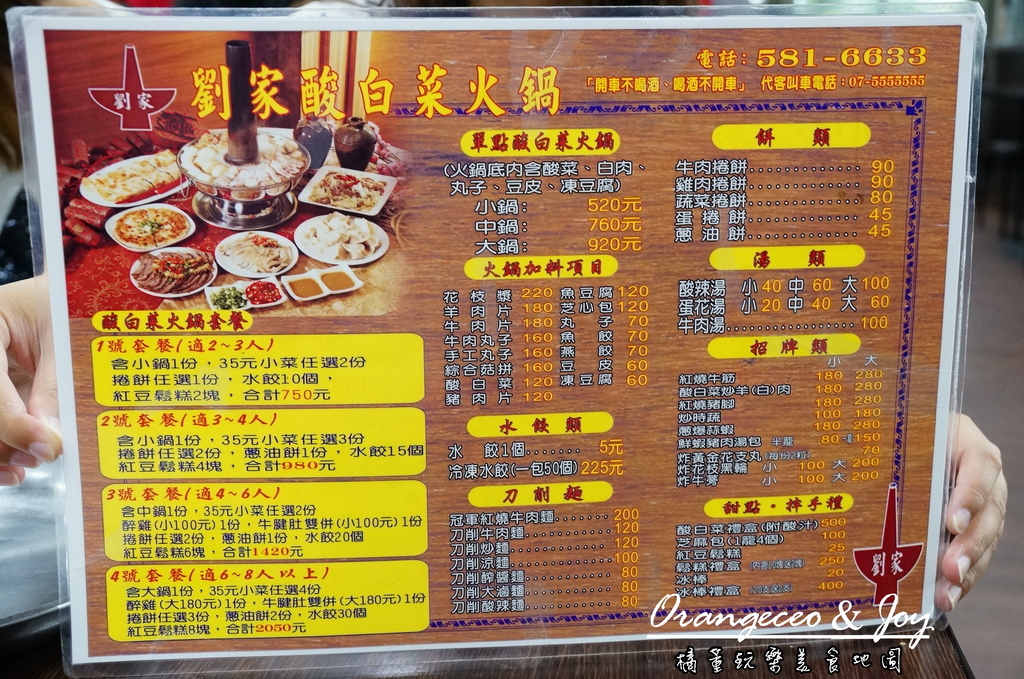 劉家
劉家酸白菜火鍋
電話：581-6633
「開車不喝酒、喝酒不開車」 代客叫車電話：07-5555555
酸白菜火鍋套餐
1號套餐(適2~3人)
含小鍋1份，35元小菜任選2份
捲餅任選1份，水餃10個，
紅豆鬆糕2塊，合計750元
2號套餐(適3~4人)
含小鍋1份，35元小菜任選3份
捲餅任選2份，蔥油餅1份，水餃15個
紅豆鬆糕4塊，合計980元
3號套餐(適4~6人)
含中鍋1份，35元小菜任選2份
醉雞(小100元)1份，牛腱肚雙併(小100元)1份
捲餅任選2份，蔥油餅1份，水餃20個
紅豆鬆糕6塊，合計1420元
4號套餐(適6~8人以上)
含大鍋1份，35元小菜任選4份
醉雞(大180元)1份，牛腱肚雙併(大180元)1份
捲餅任選3份，蔥油餅2份，水餃30個
紅豆鬆糕8塊，合計2050元
單點酸白菜火鍋
(火鍋底內含酸菜、白肉、
丸子、豆皮、凍豆腐)
小鍋：520元
中鍋：760元
大鍋：920元
火鍋加料項目
花枝漿 220 魚豆腐 120
羊肉片 180 芝心包 120
牛肉片 180 丸子 70
牛肉丸子 160 魚餃 70
手工丸子 160 燕餃 70
綜合菇拼 160 豆皮 60
酸白菜 120 凍豆腐 60
豬肉片 120
水餃類
水 餃1個....... 5元
冷凍水餃(一包50個) 225元
刀削麵
冠軍紅燒牛肉麵....... 200
刀削牛肉麵............ 120
刀削炒麵.............. 120
刀削涼麵.............. 100
刀削酢醬麵............ 80
刀削大滷麵............ 80
刀削酸辣麵............ 80
餅類
牛肉捲餅................ 90
雞肉捲餅................ 90
蔬菜捲餅................ 80
蛋捲餅................ 45
蔥油餅................ 45
湯類
酸辣湯 小40 中60 大100
蛋花湯 小20 中40 大60
牛肉湯.................. 100
招牌類
小 大
紅燒牛筋 180 280
酸白菜炒羊(白)肉 180 280
紅燒豬腳 180 280
炒時蔬 100 180
蔥爆蒜蝦 180 280
鮮蝦豬肉湯包 半籠 80 一籠 150
炸黃金花支丸(每份2粒) 70
炸花枝黑輪 小 100 大 200
炸牛蒡 小 100 大 200
甜點・拌手禮
酸白菜禮盒(附酸汁) 500
芝麻包(1籠4個) 100
紅豆鬆糕 25
鬆糕禮盒 250
冰棒 20
冰棒禮盒 400
劉家
Orangeceo & Joy
橘董玩樂美食地圖